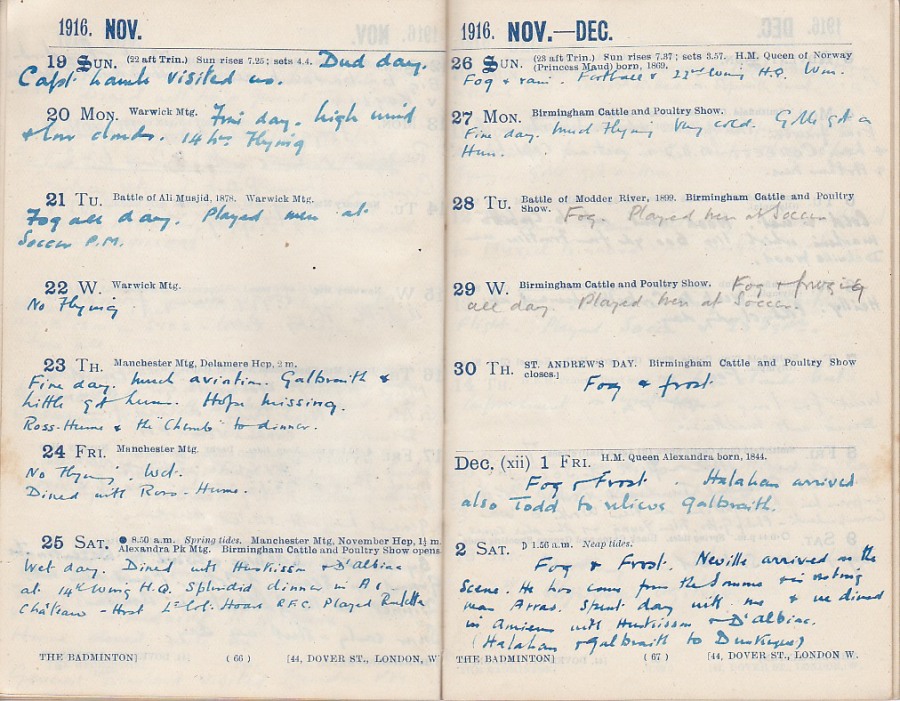 1916. NOV.
19 SUN. (22 aft Trin.) Sun rises 7.25; sets 4.4. Dud day.
Capt. Lamb visited us.
20 MON. Warwick Mtg. Fine day. high wind
& low clouds. 14 hrs Flying
21 TU. Battle of Ali Musjid, 1878. Warwick Mtg.
Fog all day. Played men at
Soccer P.M.
22 W. Warwick Mtg.
No Flying
23 TH. Manchester Mtg, Delamere Hcp, 2 m.
Fine day. Much aviation. Galbraith &
Little got huns. Hope missing.
Ross-Hume & the "Chamb" to dinner.
24 FRI. Manchester Mtg.
No Flying. Wet.
Dined with Ross-Hume.
25 SAT. ● 8.50 a.m. Spring tides. Manchester Mtg, November Hcp, 1½ m.
Alexandra Pk Mtg. Birmingham Cattle and Poultry Show opens
Wet day. Dined with Huskisson & D'Albiac
at 14th Wing H.Q. Splendid dinner in A1
Château - Host Lt Col. Hoare R.F.C. Played Roulette
THE BADMINTON] (66) [44, DOVER ST., LONDON, W
1916. NOV.—DEC.
26 SUN. (23 aft Trin.) Sun rises 7.37; sets 3.57. H.M. Queen of Norway
(Princess Maud) born, 1869.
Fog & rain. Football v 22nd Wing H.Q. Won.
27 MON. Birmingham Cattle and Poultry Show.
Fine day. Much Flying Very cold. G got a
Hun.
28 TU. Battle of Modder River, 1899. Birmingham Cattle and Poultry
Show. Fog. Played men at Soccer
29 W. Birmingham Cattle and Poultry Show. Fog & freezing
all day. Played men at Soccer.
30 TH. ST. ANDREW'S DAY. Birmingham Cattle and Poultry Show
closes.]
Fog & frost.
Dec. (xii) 1 FRI. H.M. Queen Alexandra born, 1844.
Fog & Frost. Halahan arrived
also Todd to relieve Galbraith.
2 SAT. ☽ 1.56 a.m. Neap tides.
Fog & Frost. Neville arrived on the
scene. He has come from the Somme & is resting
near Arras. Spent day with me & we dined
in Amiens with Huskisson & D'Albiac.
(Halahan & Galbraith to Dunkerque)
THE BADMINTON] (67) [44, DOVER ST., LONDON W.